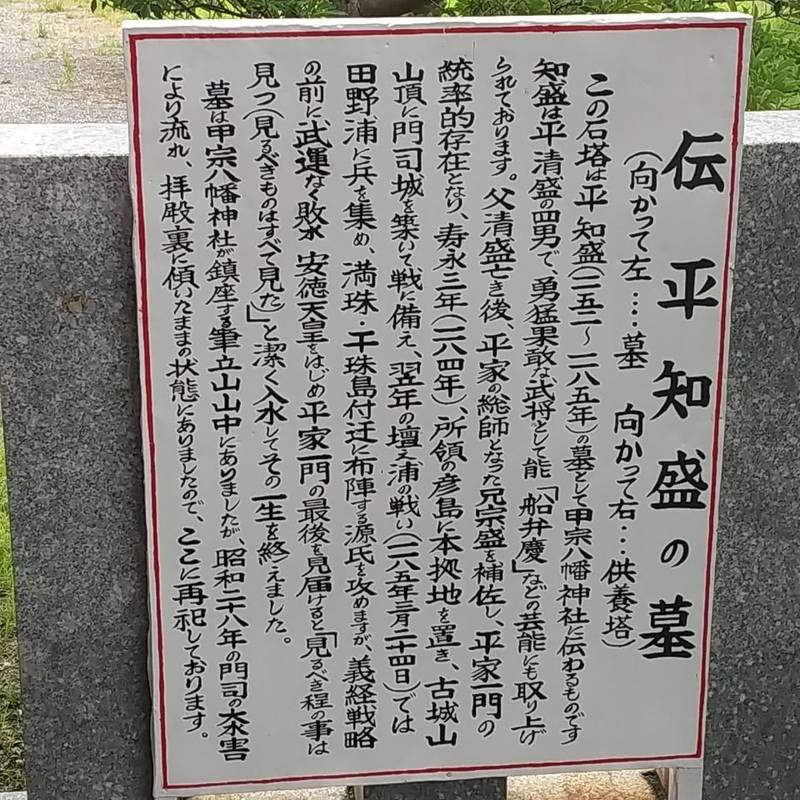 伝 平 知 盛 の 墓
(向かって左 ‥‥ 墓 向かって右 ‥‥ 供養塔)
この石塔は平 知盛(一一五二〜一一八五年)の墓として甲宗八幡神社に伝わるものです
知盛は平 清盛の四男で、勇猛果敢な武将として能「船弁慶」などの芸能にも取り上げ
られております。父清盛亡き後、平家の総師となった兄宗盛を補佐し、平家一門の
統率的存在となり、寿永三年(一一八四年)、所領の彦島に本拠地を置き、古城山
山頂に門司城を築いて戦に備え、翌年の壇之浦の戦い(一一八五年三月二十四日)では
田野浦に兵を集め、満珠・干珠島付近に布陣する源氏を攻めますが、義経戦略
の前に武運なく敗れ 安徳天皇をはじめ平家一門の最後を見届けると「見るべき程の事は
見つ(見るべきものはすべて見た)」と潔く入水してその一生を終えました。
墓は甲宗八幡神社が鎮座する筆立山山中にありましたが、昭和二十八年の門司の大水害
により流れ、拝殿裏に傾いたままの状態にありましたので、ここに再祀しております。